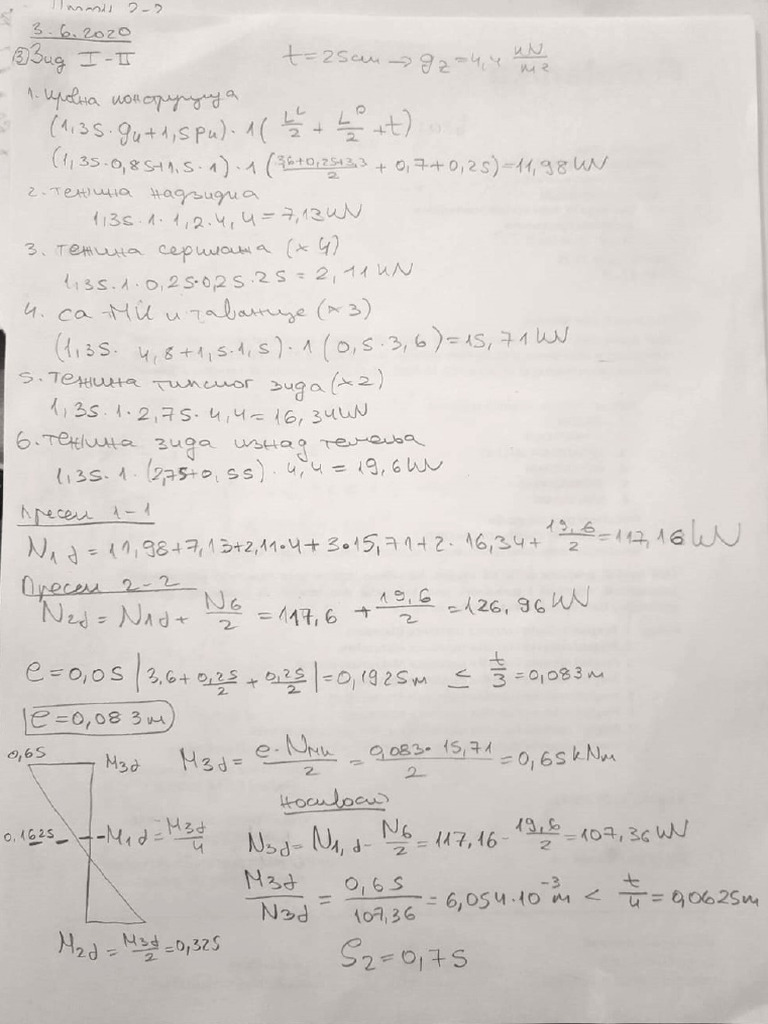 3.6.2020
③ Зид I-II t=25cm → g₂=4,4 kN/m²
1. кровна конструкција
(1,35·gu+1,5pu)·1(L^L/2 + L^D/2 +t)
(1,35·0,85+1,5·1)·1(3,6+0,25+3,3/2 + 0,7+0,25)=11,98kN
2. тежина надзидка
1,35·1·1,2·4,4=7,13kN
3. тежина серклажа (x4)
1,35·1·0,25·0,25·25=2,11kN
4. са МК и таванице (x3)
(1,35· 4,8+1,5·1,5)·1(0,5·3,6)=15,71kN
5. тежина типског зида (x2)
1,35·1·2,75·4,4=16,34kN
6. тежина зида изнад темеља
1,35·1·(2,75+0,55)·4,4=19,6kN
Пресек 1-1
N1d=11,98+7,13+2,11·4+3·15,71+2·16,34+19,6/2=117,16kN
Пресек 2-2
N2d=N1d+N6/2=117,6+19,6/2=126,96kN
e=0,05|3,6+0,25/2+0,25/2|=0,1925m ≤ t/3=0,083m
e=0,083m
0,65 M3d M3d=e·Nмк/2=0,083·15,71/2=0,65kNm
Носивост
0,1625 M1d=M3d/4 N3d=N1,d-N6/2=117,16-19,6/2=107,36kN
M3d/N3d=0,65/107,36=6,054·10⁻³m < t/4=0,0625m
M2d=M3d/2=0,325 S2=0,75